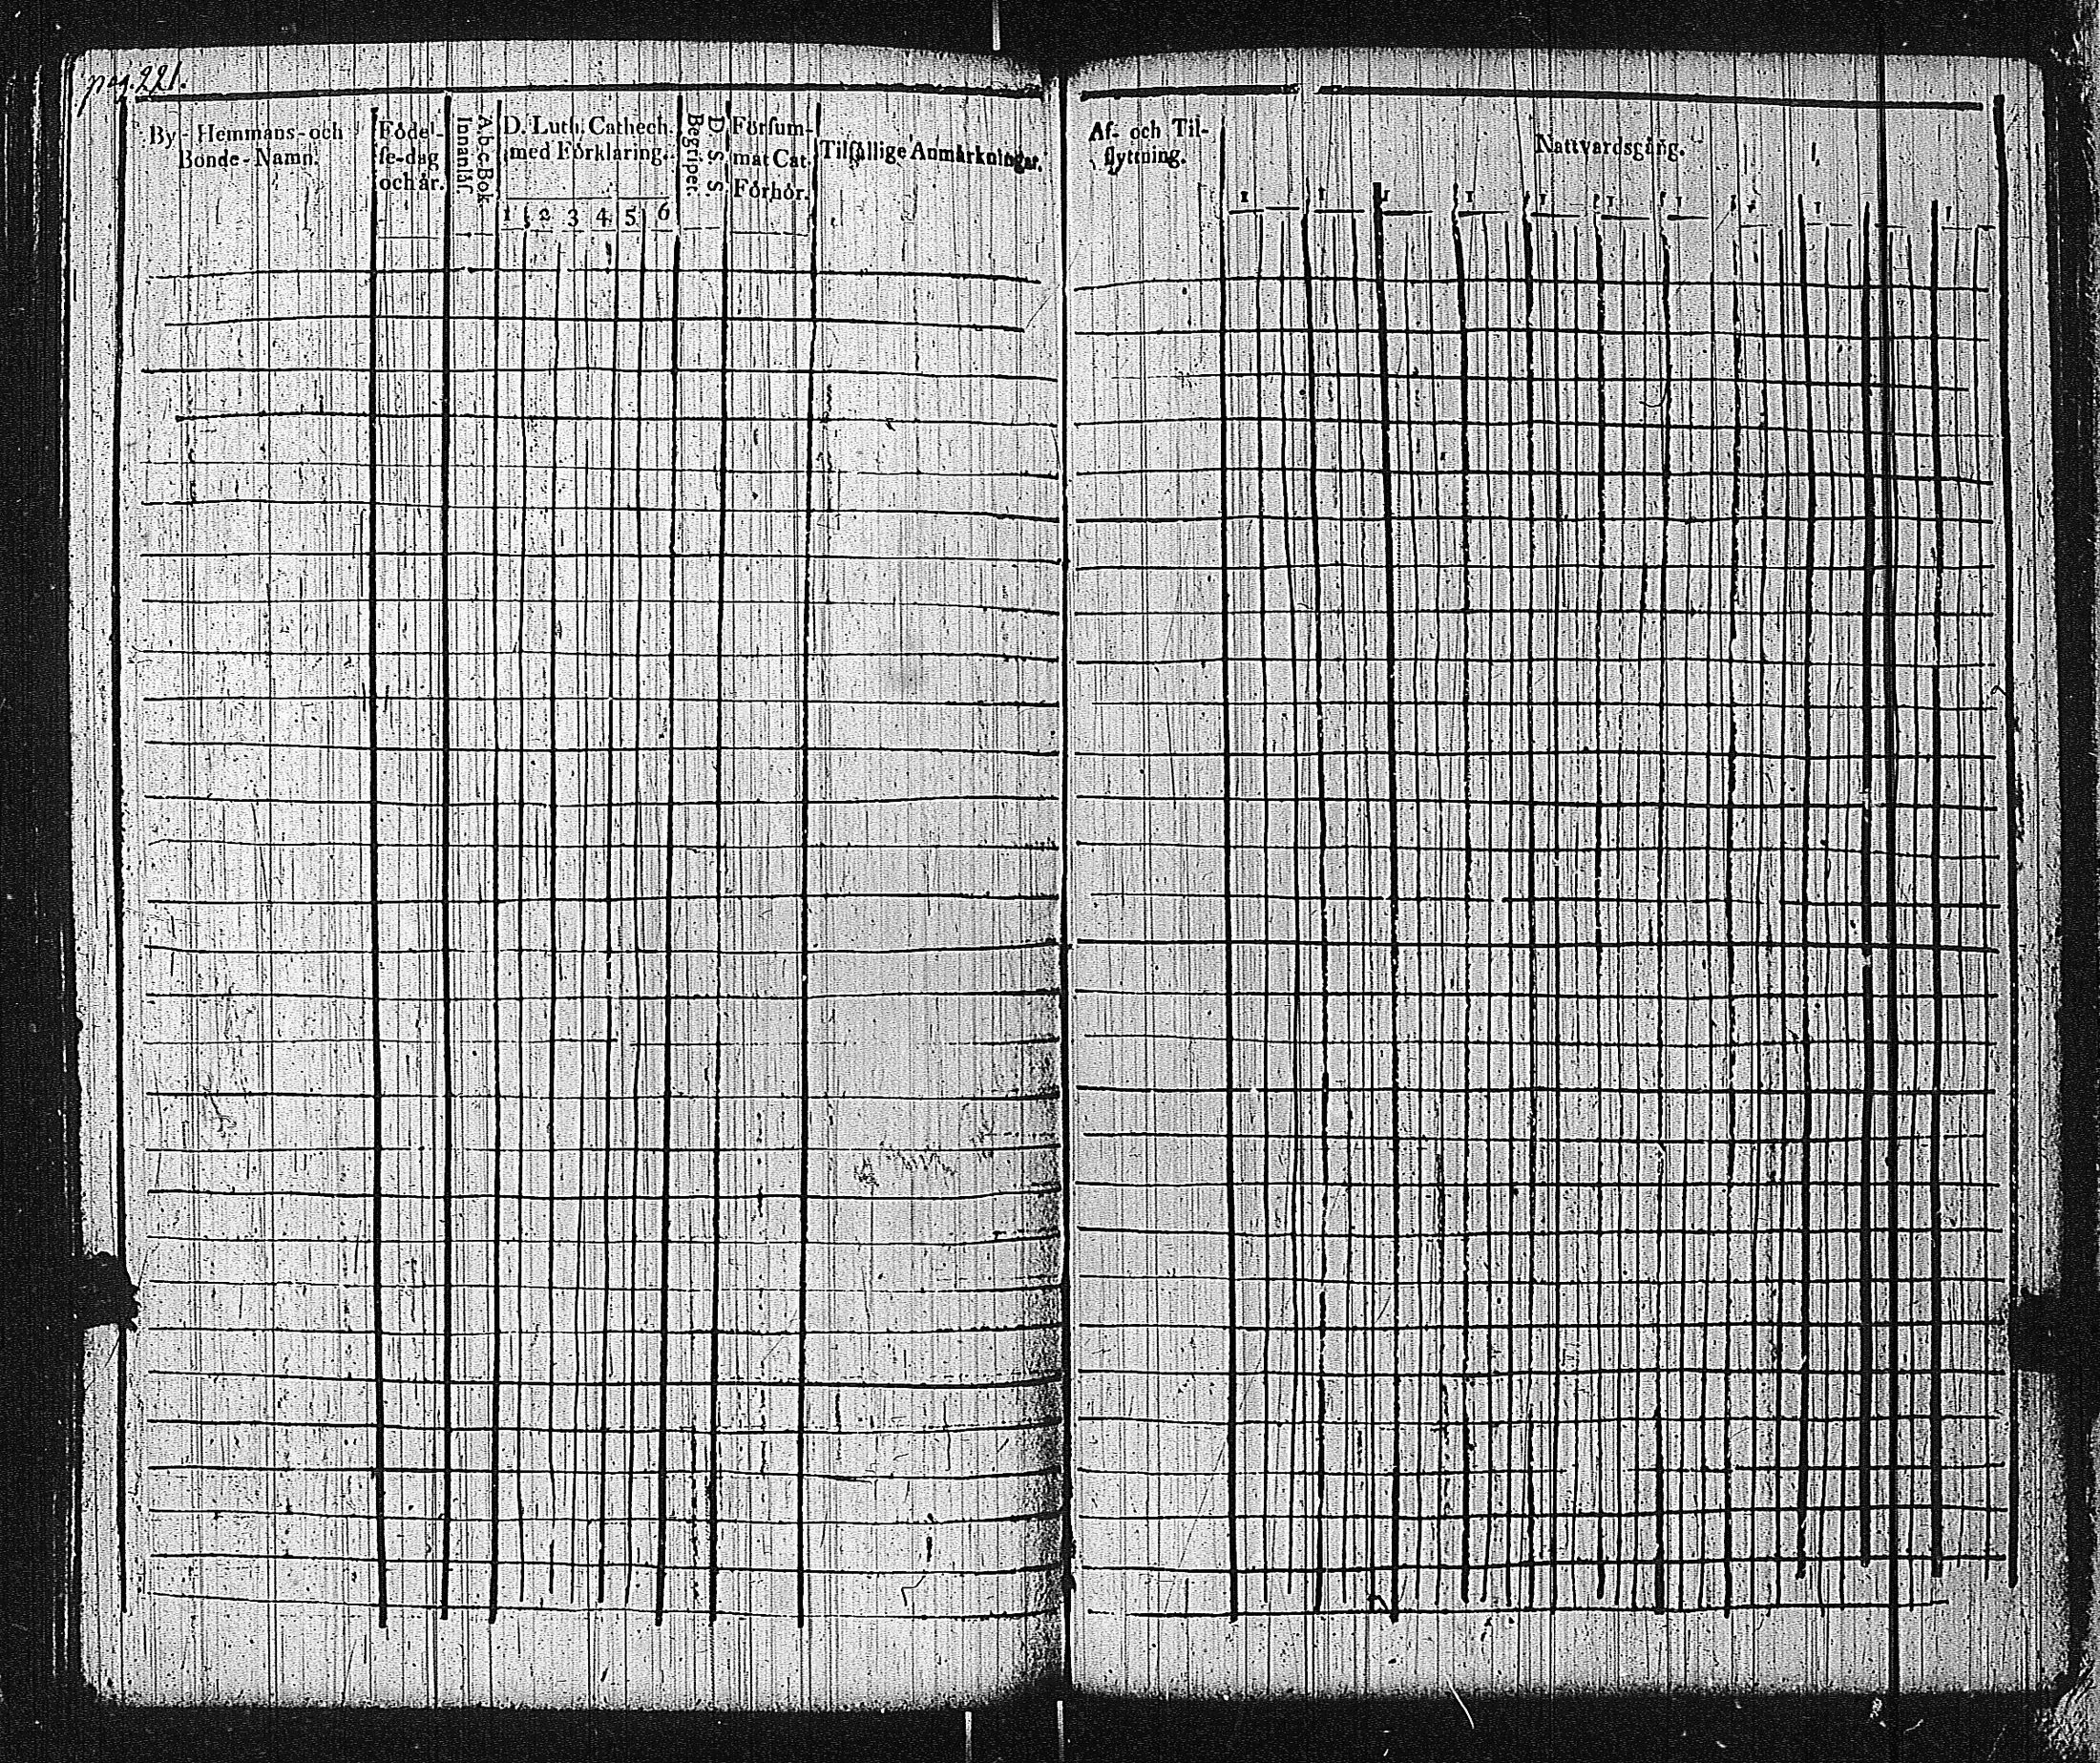 pag. 221.
By- Hemmans- och
Bonde-Namn.
Födel-
se-dag
och år.
A,b,c,Bok
Innanlär.
D. Luth. Cathech.
med Förklaring.
1 2 3 4 5 6
D. S. S.
Begriper.
Försum-
mat Cat.
Förhör.
Tilfällige Anmärkningar.
Af- och Til-
flyttning.
Nattvardsgång.